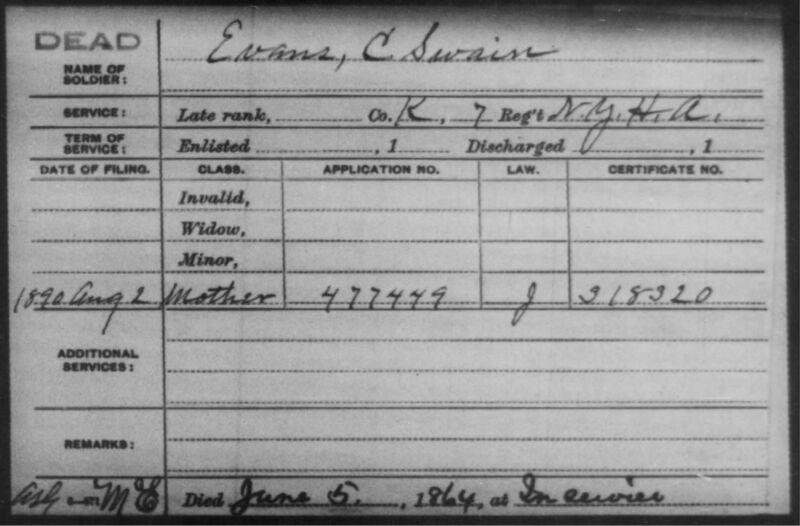 DEAD
Evans, C. Swain
NAME OF SOLDIER:
SERVICE: Late rank, Co. K, 7 Reg't N.Y.H.A.
TERM OF SERVICE: Enlisted , 1 Discharged , 1
DATE OF FILING. CLASS. APPLICATION NO. LAW. CERTIFICATE NO.
Invalid,
Widow,
Minor,
1890 Aug 2 Mother 477449 J 318320
ADDITIONAL SERVICES:
REMARKS:
Died June 5. , 1864, at In service